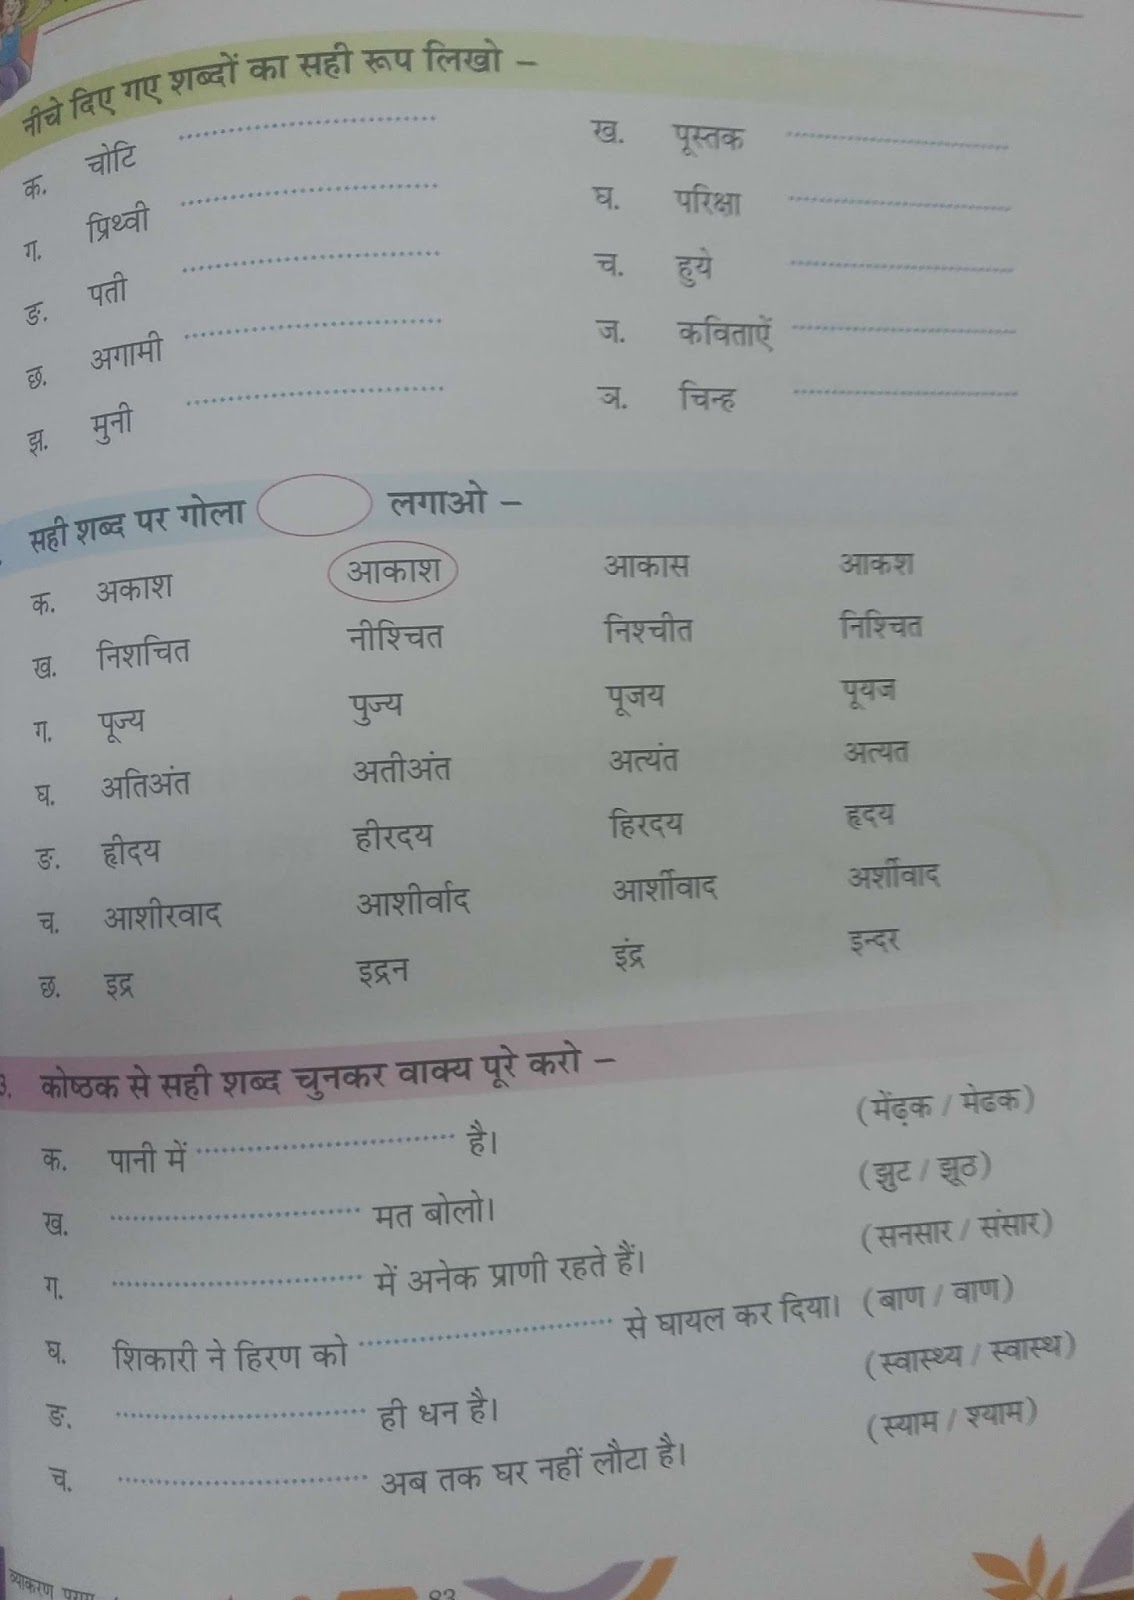 नीचे दिए गए शब्दों का सही रूप लिखो –
क. चोटि ........................ ख. पूस्तक ........................
ग. प्रिथ्वी ........................ घ. परिक्षा ........................
ङ. पती ........................ च. हुये ........................
छ. अगामी ........................ ज. कविताऐं ........................
झ. मुनी ........................ ञ. चिन्ह ........................
सही शब्द पर गोला लगाओ –
क. अकाश आकाश आकास आकश
ख. निशचित नीश्चित निश्चीत निश्चित
ग. पूज्य पुज्य पूजय पूयज
घ. अतिअंत अतीअंत अत्यंत अत्यत
ङ. हृीदय हीरदय हिरदय हृदय
च. आशीरवाद आशीर्वाद आर्शीवाद अर्शीवाद
छ. इद्र इद्रन इंद्र इन्दर
3. कोष्ठक से सही शब्द चुनकर वाक्य पूरे करो –
क. पानी में ........................ है। (मेंढ़क / मेढक)
ख. ........................ मत बोलो। (झुट / झूठ)
ग. ........................ में अनेक प्राणी रहते हैं। (सनसार / संसार)
घ. शिकारी ने हिरण को ........................ से घायल कर दिया। (बाण / वाण)
ङ. ........................ ही धन है। (स्वास्थ्य / स्वास्थ)
च. ........................ अब तक घर नहीं लौटा है। (स्याम / श्याम)
व्याकरण